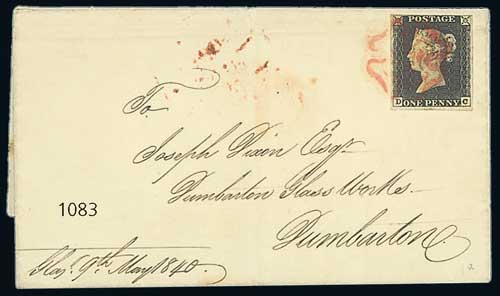 POSTAGE
D ONE PENNY C
To.
Joseph Dixon Esqr
Dumbarton Glass Works.
Dumbarton
1083
Glas. 9th May 1840.